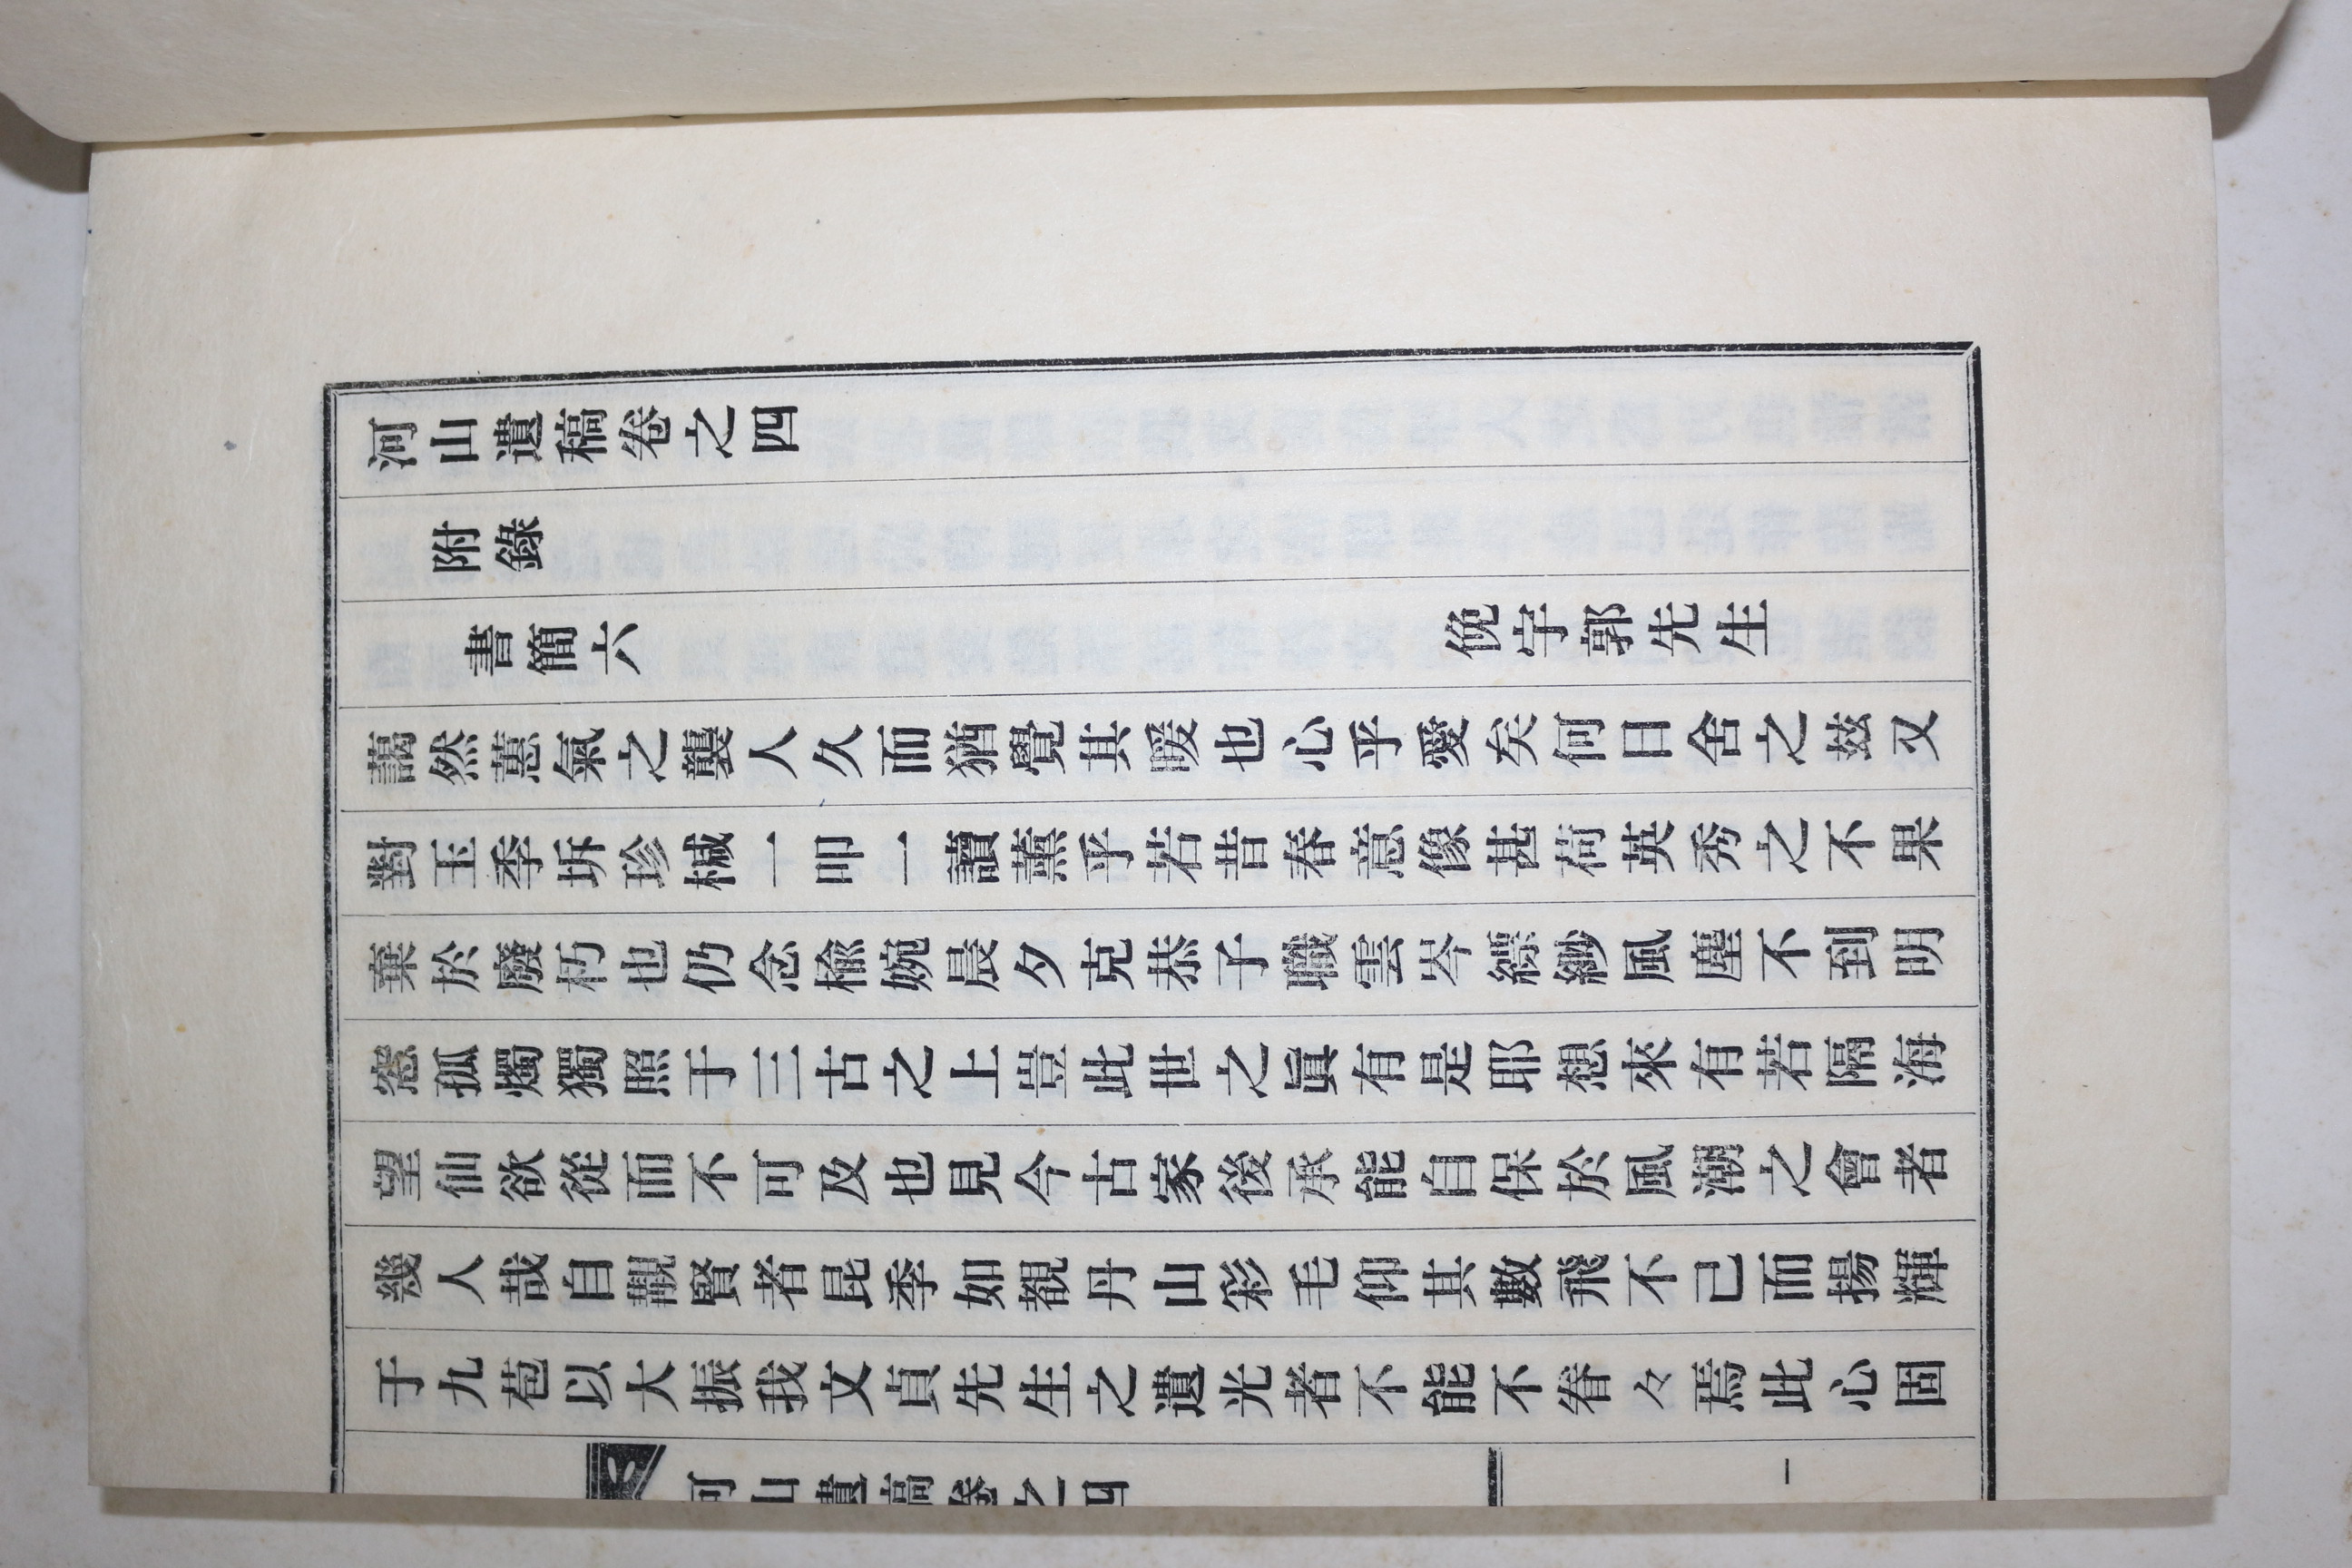 河山遺稿卷之四
附錄
書簡六　俛宇郭先生
藹然蕙氣之襲人久而猶覺其暖也心乎愛矣何日舍之玆又
對玉季坼珍椷一叩一讀薰乎若昔春意像甚荷英秀之不果
棄於廢朽也仍念楡婉晨夕克恭子職雲岑縹緲風塵不到明
窓孤燭獨照于三古之上豈此世之眞有是耶想來有若隔海
望仙欲從而不可及也見今古家後承能自保於風潮之會者
幾人哉自覯賢者昆季如覩丹山彩毛仰其數飛不已而揚輝
于九苞以大振我文貞先生之遺光者不能不眷々焉此心固
河山遺稿卷之四　一